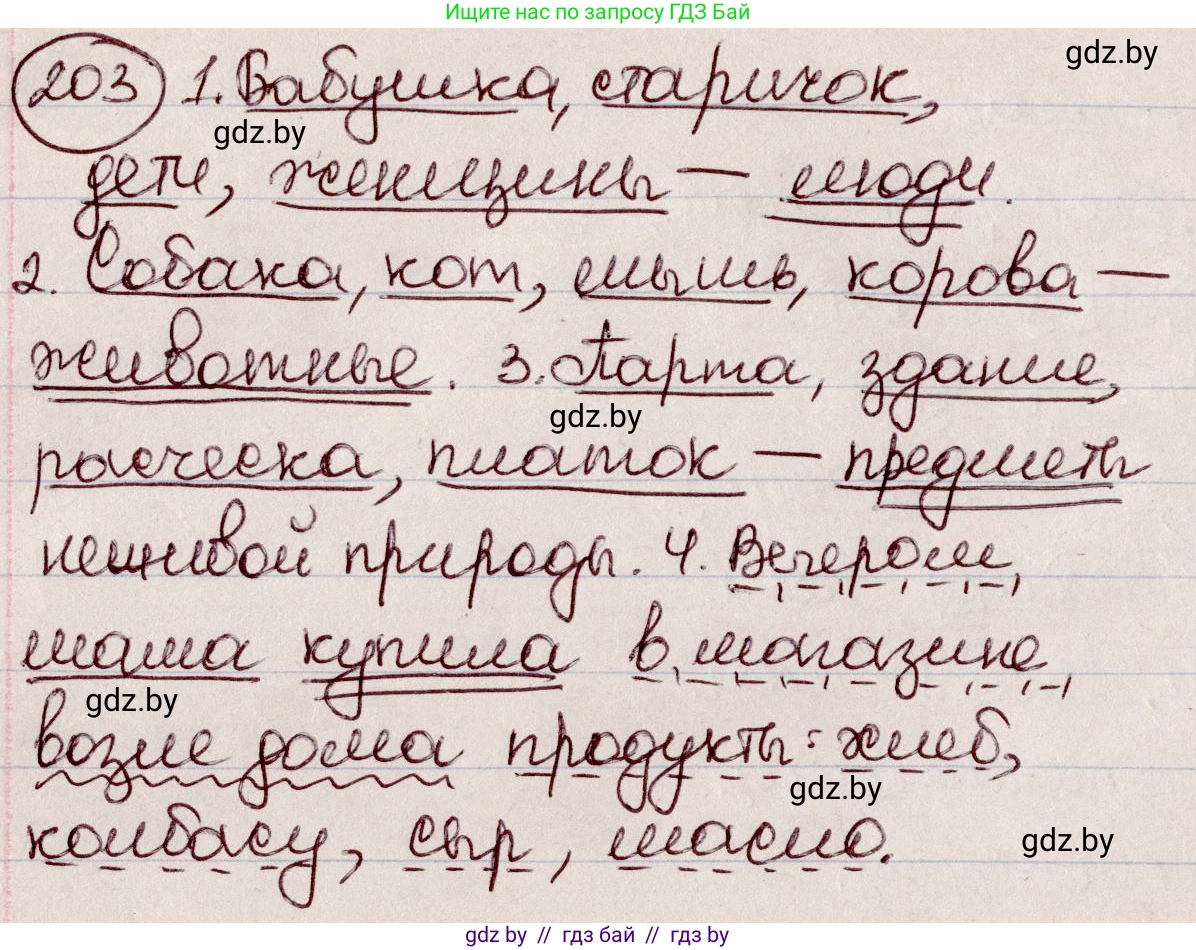 Ищите нас по запросу ГДЗ Бай
gdz.by
203 1. Бабушка, старичок,
gdz.by
дети, женщины — люди.
2. Собака, кот, мышь, корова —
животные. 3. Парта, здание,
gdz.by
расческа, платок — предметы
неживой природы. 4. Вечером
мама купила в магазине
gdz.by
возле дома продукты: хлеб,
gdz.by
колбасу, сыр, масло.
gdz.by
gdz by // гдз бай // гдз by